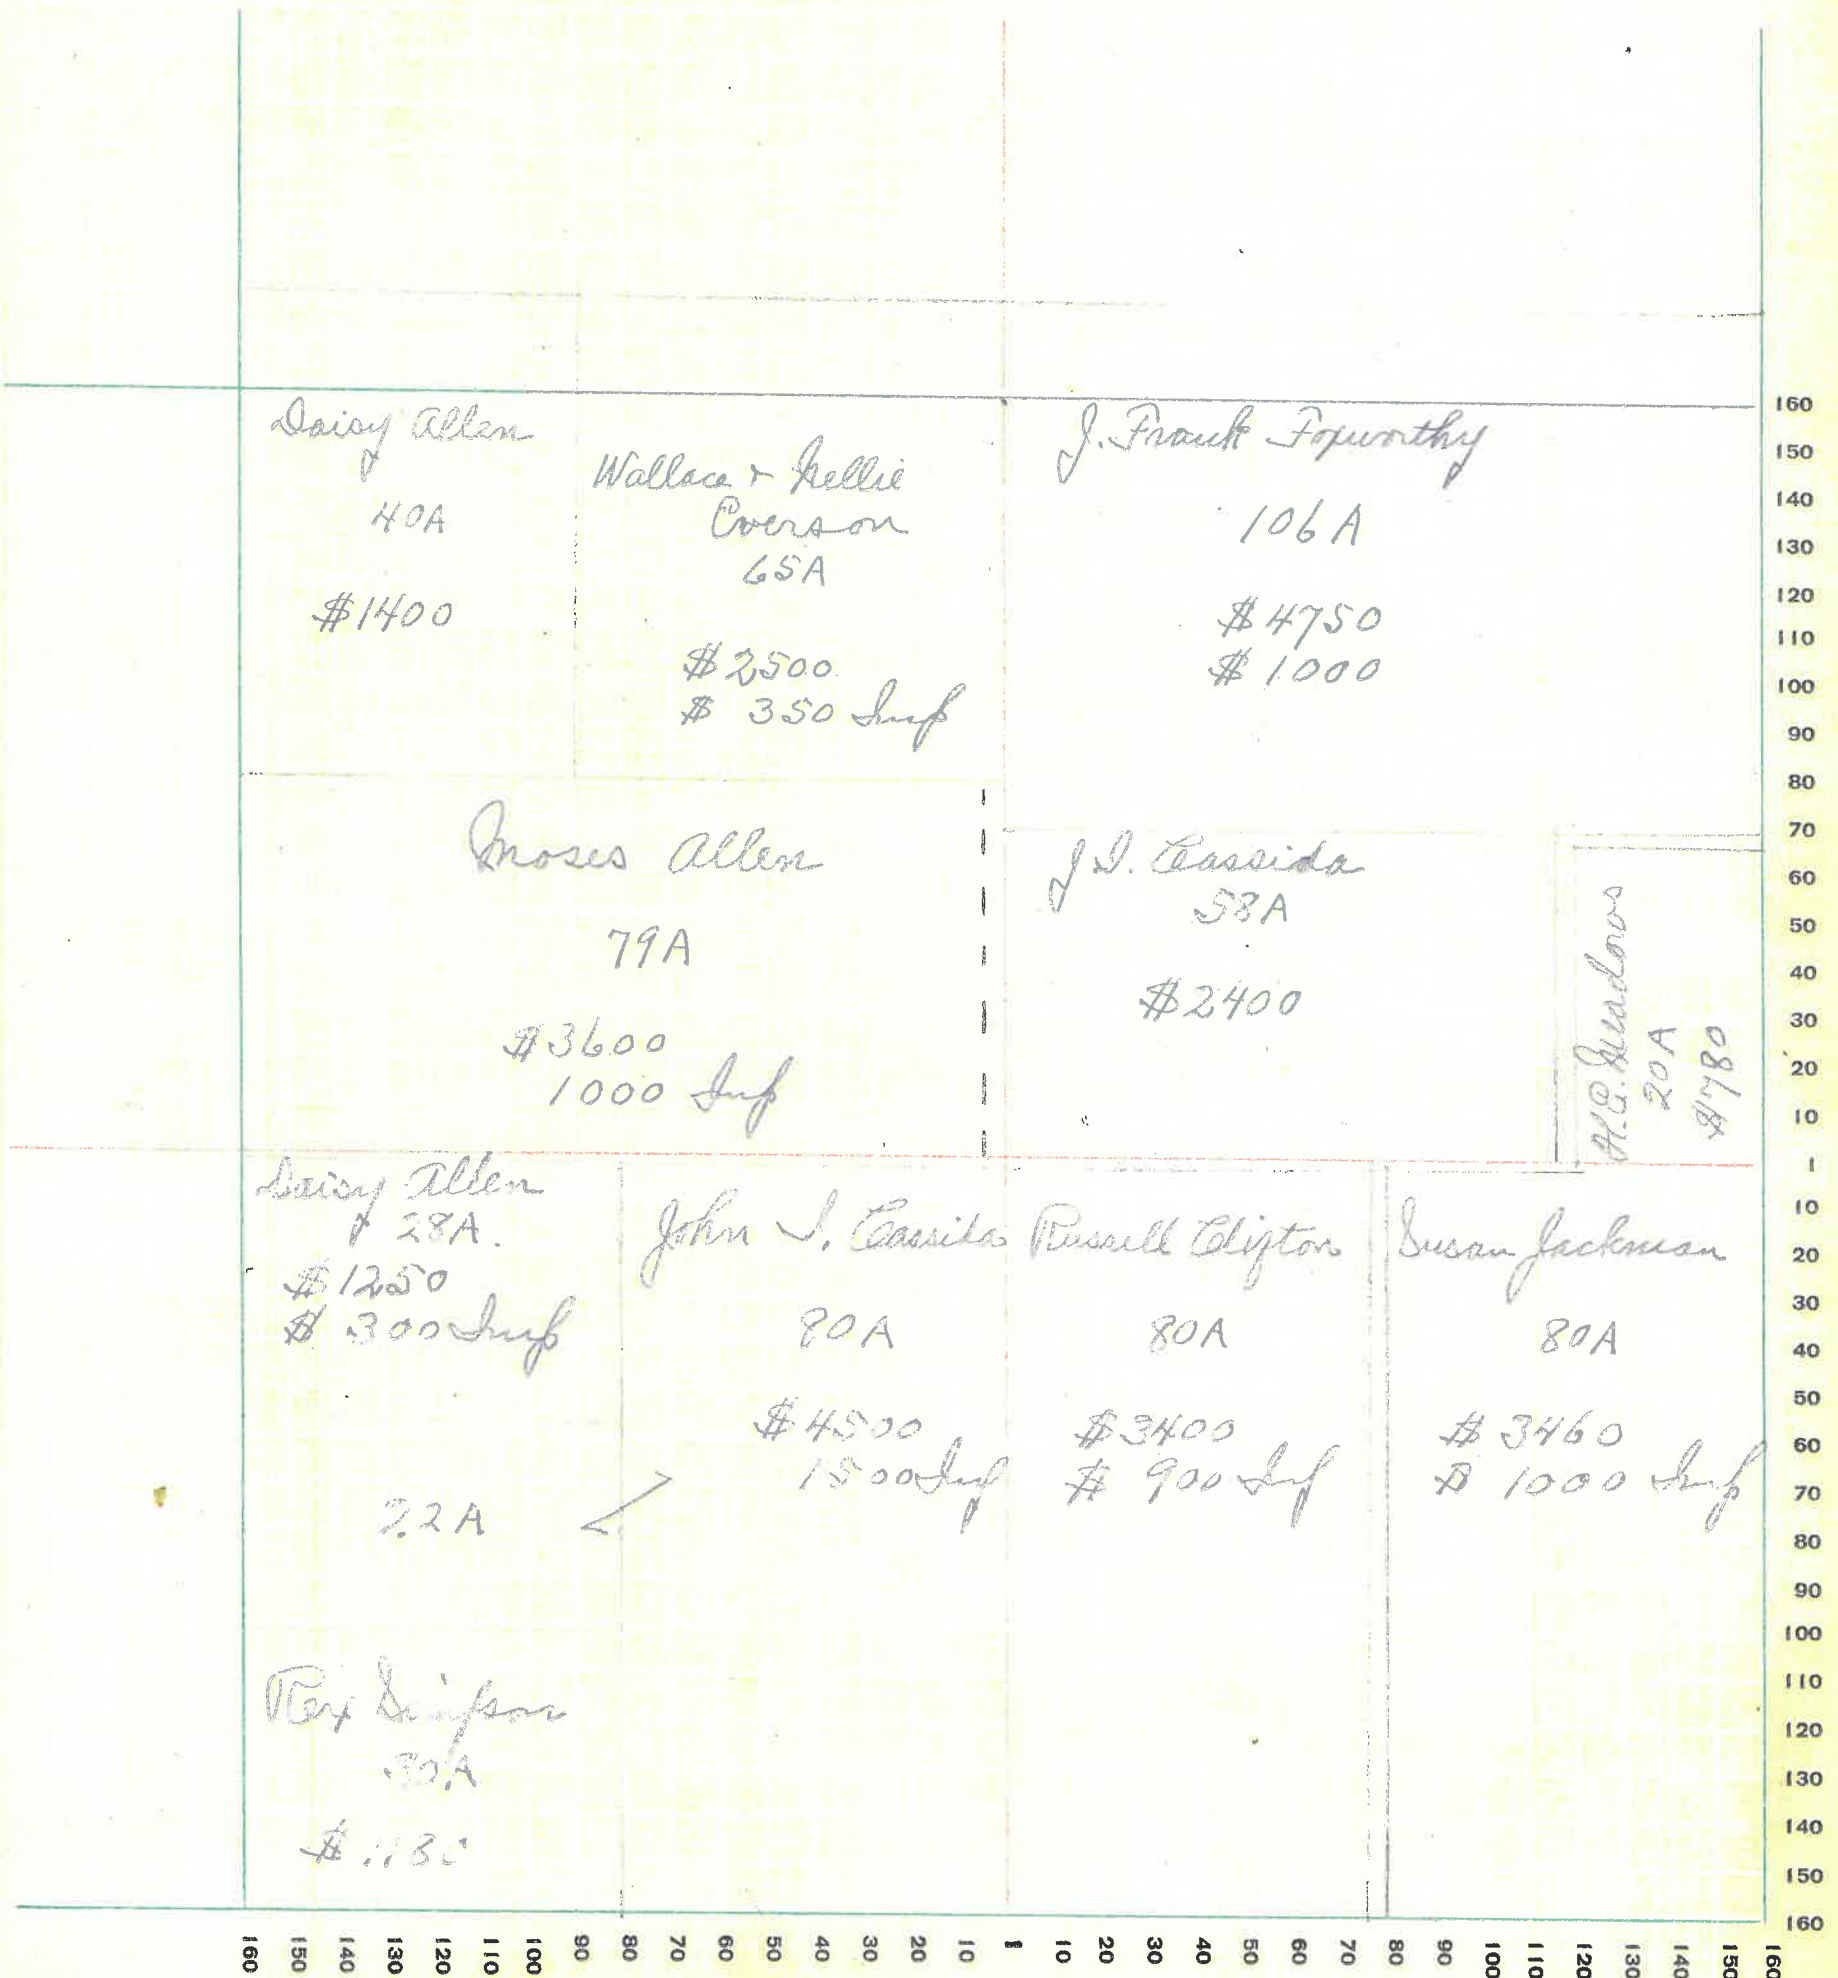 Daisy Allen
40A
$1400
Wallace & Nellie
Everson
65A
$2500
$ 350 Imp
J. Frank Foxworthy
106 A
$4750
$1000
Moses Allen
79A
$3600
1000 Imp
J.I. Cassida
58A
$2400
H.C. Meadows
20A
$780
Daisy Allen
28A.
$1250
$ 300 Imp
22A
Rex Simpson
30A
John I. Cassida
80A
$4500
1500 Imp
Russell Clifton
80A
$3400
$ 900 Imp
Susan Jackman
80A
$3460
$ 1000 Imp
160
150
140
130
120
110
100
90
80
70
60
50
40
30
20
10
1
10
20
30
40
50
60
70
80
90
100
110
120
130
140
150
160
160 150 140 130 120 110 100 90 80 70 60 50 40 30 20 10 1 10 20 30 40 50 60 70 80 90 100 110 120 130 140 150 160